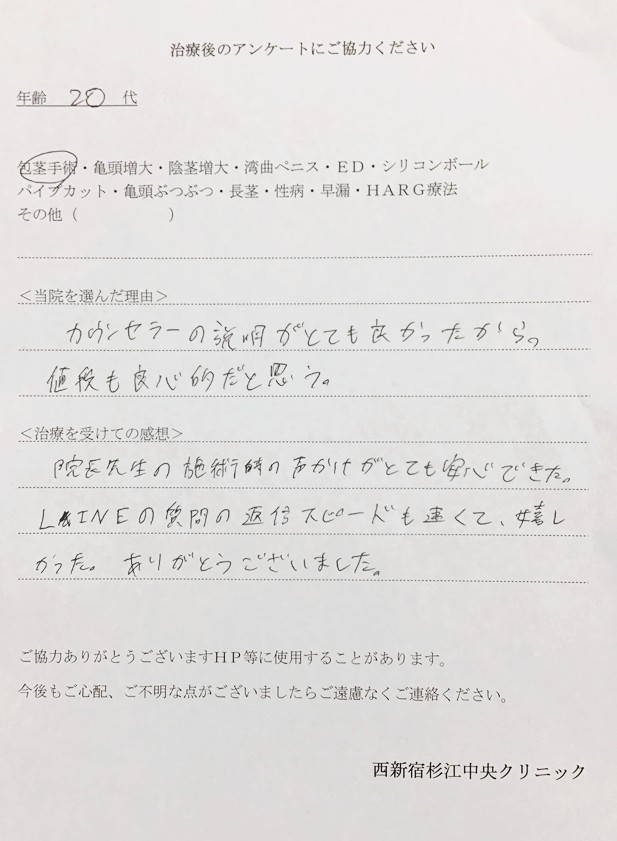 治療後のアンケートにご協力ください
年齢 20 代
包茎手術・亀頭増大・陰茎増大・湾曲ペニス・ED・シリコンボール
パイプカット・亀頭ぶつぶつ・長茎・性病・早漏・HARG療法
その他（　　　　　　）
＜当院を選んだ理由＞
カウンセラーの説明がとても良かったから。
値段も良心的だと思う。
＜治療を受けての感想＞
院長先生の施術時の声かけがとても安心できた。
LINEの質問の返信スピードも速くて、嬉し
かった。ありがとうございました。
ご協力ありがとうございますHP等に使用することがあります。
今後もご心配、ご不明な点がございましたらご遠慮なくご連絡ください。
西新宿杉江中央クリニック